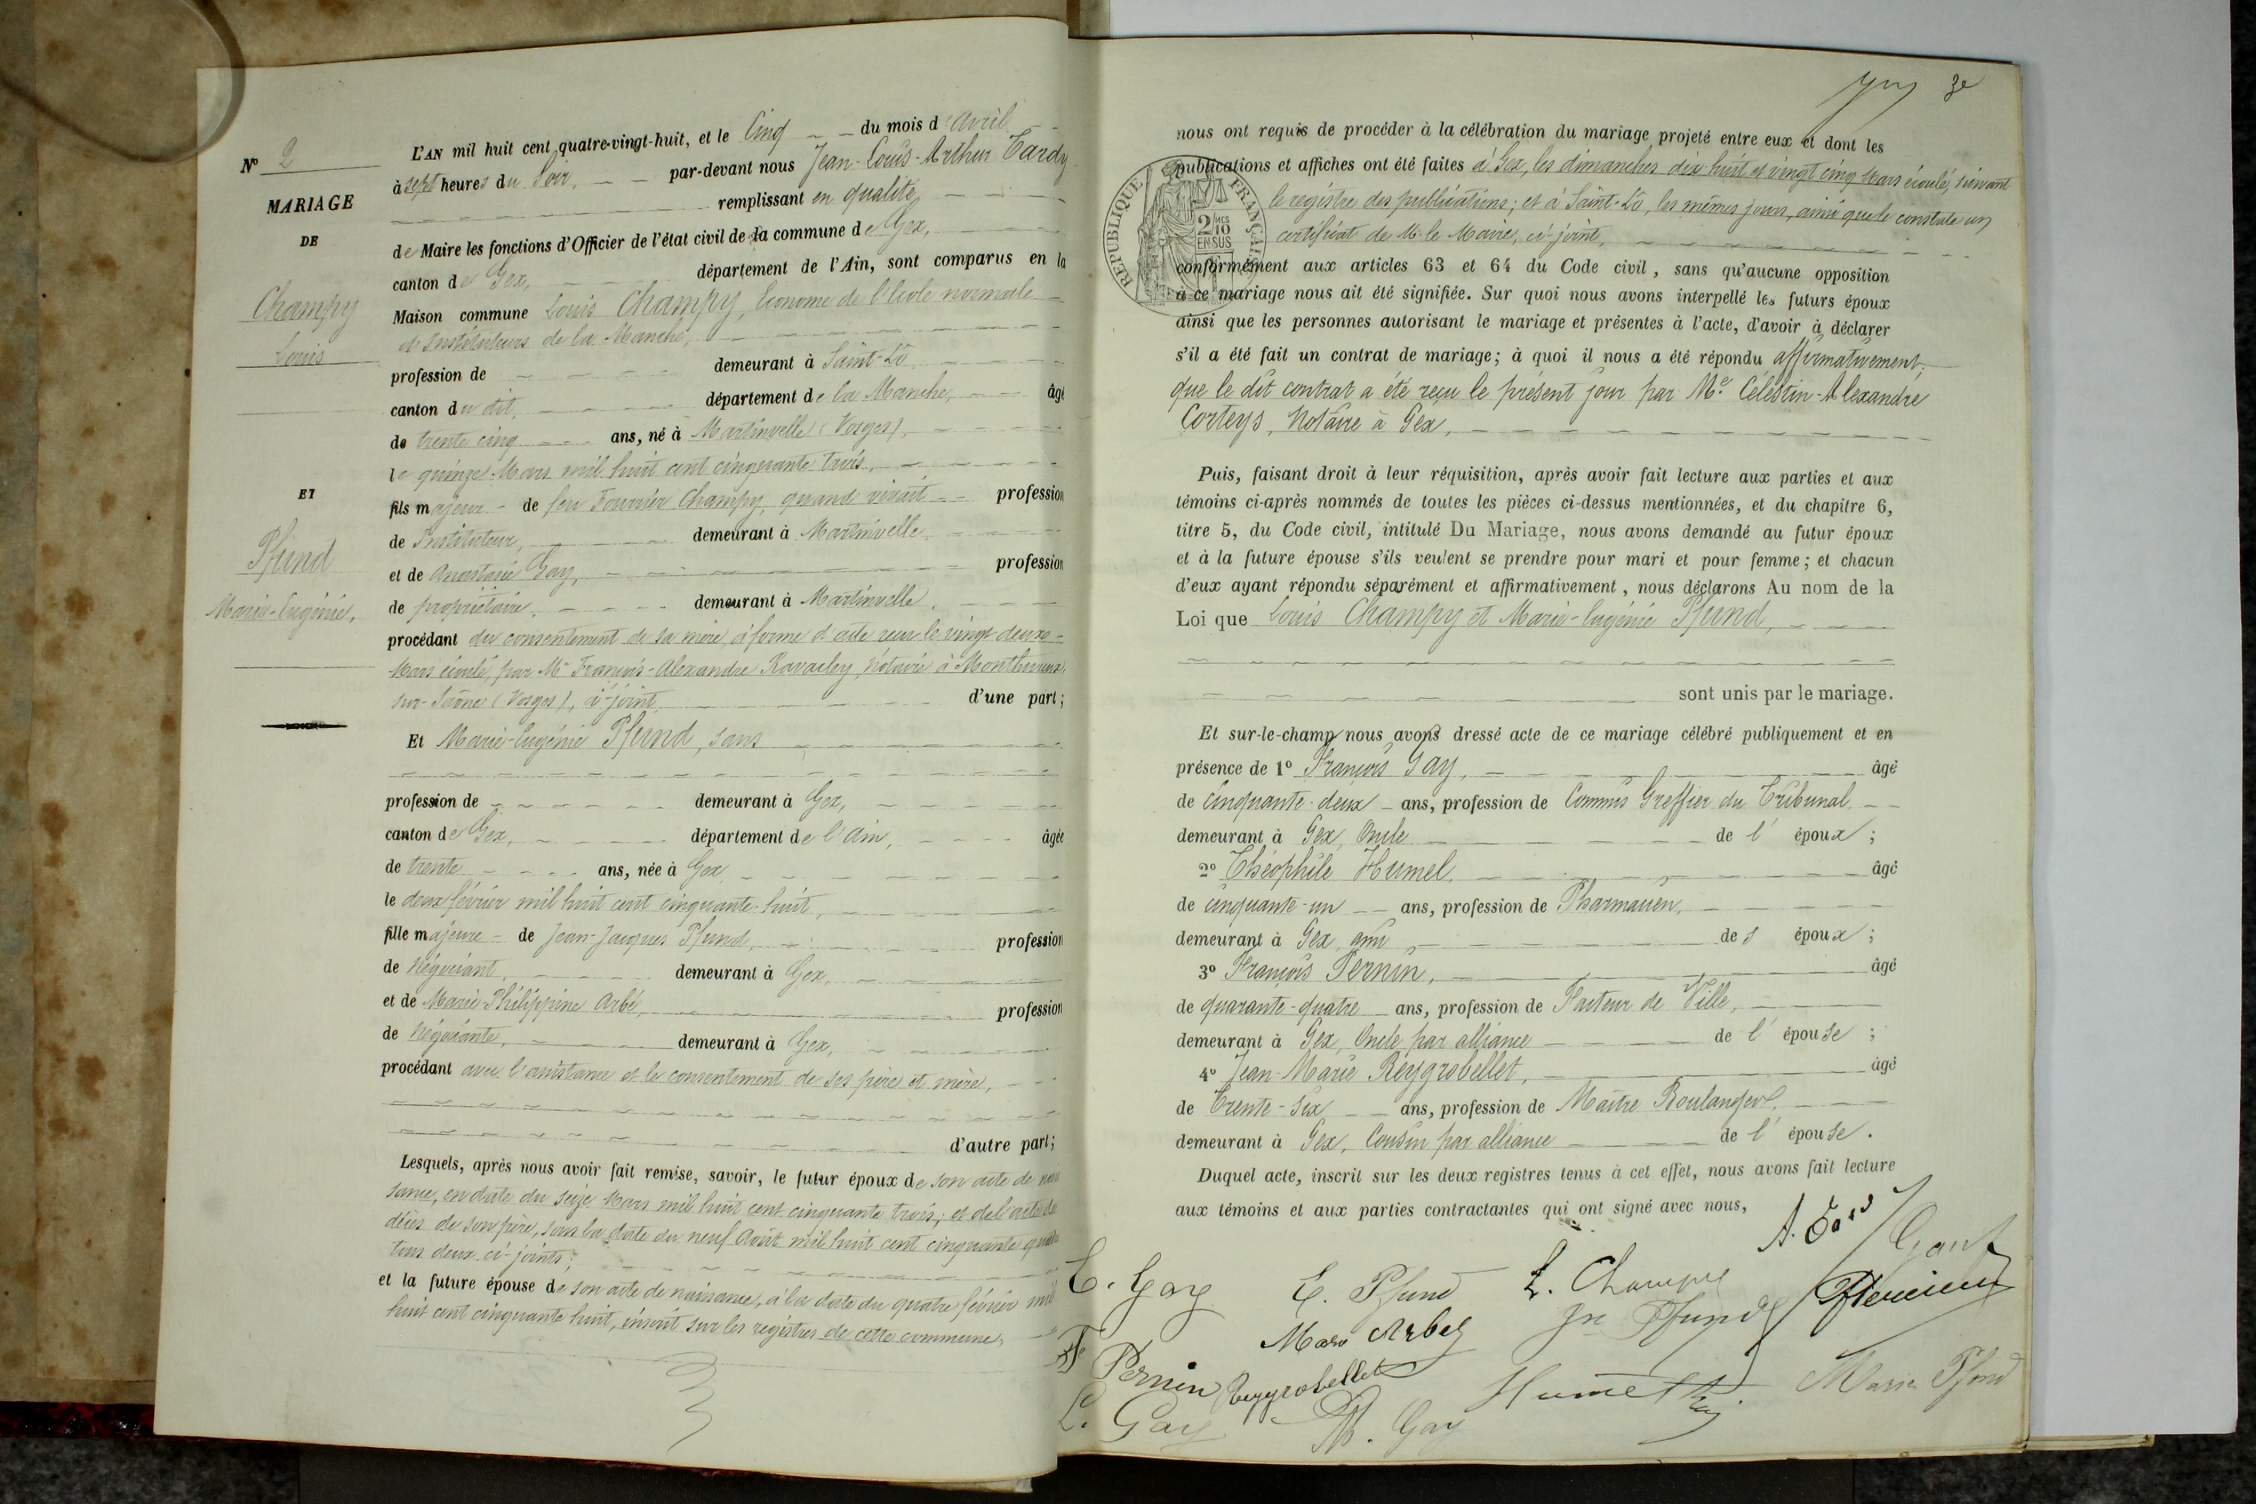 N° 2
MARIAGE
DE
Champy
Louis
ET
Pfund
Marie-Eugénie.
L'AN mil huit cent quatre-vingt-huit, et le Cinq du mois d'avril
à sept heures du soir, par-devant nous Jean-Louis-Arthur Tardy
remplissant en qualité
de Maire les fonctions d'Officier de l'état civil de la commune de Gex,
canton de Gex, département de l'Ain, sont comparus en la
Maison commune Louis Champy, Econome de l'Ecole normale
d'Instituteurs de la Manche,
profession de demeurant à Saint-Lô
canton du dit, département de la Manche, âgé
de trente cinq ans, né à Martinvelle (Vosges),
le quinze Mars mil huit cent cinquante trois,
fils majeur de feu Fourrier Champy, quand vivait profession
de Instituteur, demeurant à Martinvelle
et de Anastasie Gay, profession
de propriétaire, demeurant à Martinvelle,
procédant du consentement de sa mère, à forme d'acte reçu le vingt deux
Mars écoulé, par Me François-Alexandre Ravailey, Notaire à Monthureux
sur-Saône (Vosges), ci-joint d'une part;
Et Marie-Eugénie Pfund, sans
profession de demeurant à Gex,
canton de Gex, département de l'Ain, âgée
de trente ans, née à Gex
le deux février mil huit cent cinquante-huit,
fille majeure de Jean-Jacques Pfund, profession
de Négociant, demeurant à Gex,
et de Marie Philippine Arbé, profession
de Négociante, demeurant à Gex,
procédant avec l'assistance et le consentement de ses père et mère,
d'autre part;
Lesquels, après nous avoir fait remise, savoir, le futur époux de son acte de nais
sance, en date du seize Mars mil huit cent cinquante trois; et de l'acte de
décès de son père, sous la date du neuf Août mil huit cent cinquante
tous deux ci-joints;
et la future épouse de son acte de naissance, à la date du quatre février mil
huit cent cinquante huit, inscrit sur les registres de cette commune,
3e
nous ont requis de procéder à la célébration du mariage projeté entre eux et dont les
publications et affiches ont été faites à Gex, les dimanches dix huit et vingt cinq Mars écoulé, suivant
le registre des publications; et à Saint-Lô, les mêmes jours, ainsi que le constate un
certificat de M. le Maire, ci-joint,
RÉPUBLIQUE FRANÇAISE
2/10
EN SUS
conformément aux articles 63 et 64 du Code civil, sans qu'aucune opposition
à ce mariage nous ait été signifiée. Sur quoi nous avons interpellé les futurs époux
ainsi que les personnes autorisant le mariage et présentes à l'acte, d'avoir à déclarer
s'il a été fait un contrat de mariage; à quoi il nous a été répondu affirmativement;
que le dit contrat a été reçu le présent jour par Me Célestin-Alexandre
Corteys, Notaire à Gex,
Puis, faisant droit à leur réquisition, après avoir fait lecture aux parties et aux
témoins ci-après nommés de toutes les pièces ci-dessus mentionnées, et du chapitre 6,
titre 5, du Code civil, intitulé Du Mariage, nous avons demandé au futur époux
et à la future épouse s'ils veulent se prendre pour mari et pour femme; et chacun
d'eux ayant répondu séparément et affirmativement, nous déclarons Au nom de la
Loi que Louis Champy et Marie-Eugénie Pfund,
sont unis par le mariage.
Et sur-le-champ nous avons dressé acte de ce mariage célébré publiquement et en
présence de 1° François Gay, âgé
de Cinquante-deux ans, profession de Commis Greffier du Tribunal
demeurant à Gex, Oncle de l'époux;
2° Théophile Humel, âgé
de cinquante-un ans, profession de Pharmacien,
demeurant à Gex, ami des époux;
3° François Pernin, âgé
de quarante-quatre ans, profession de Facteur de Ville,
demeurant à Gex, Oncle par alliance de l'épouse;
4° Jean-Marie Reygrobellet, âgé
de Trente-six ans, profession de Maître Boulanger,
demeurant à Gex, Cousin par alliance de l'épouse.
Duquel acte, inscrit sur les deux registres tenus à cet effet, nous avons fait lecture
aux témoins et aux parties contractantes qui ont signé avec nous,
E. Gay
E. Pfund
L. Champy
Jn Pfund
Marie Arbez
F. Pernin
Reygrobellet
Humel
Marie Pfund
L. Gay
Gay